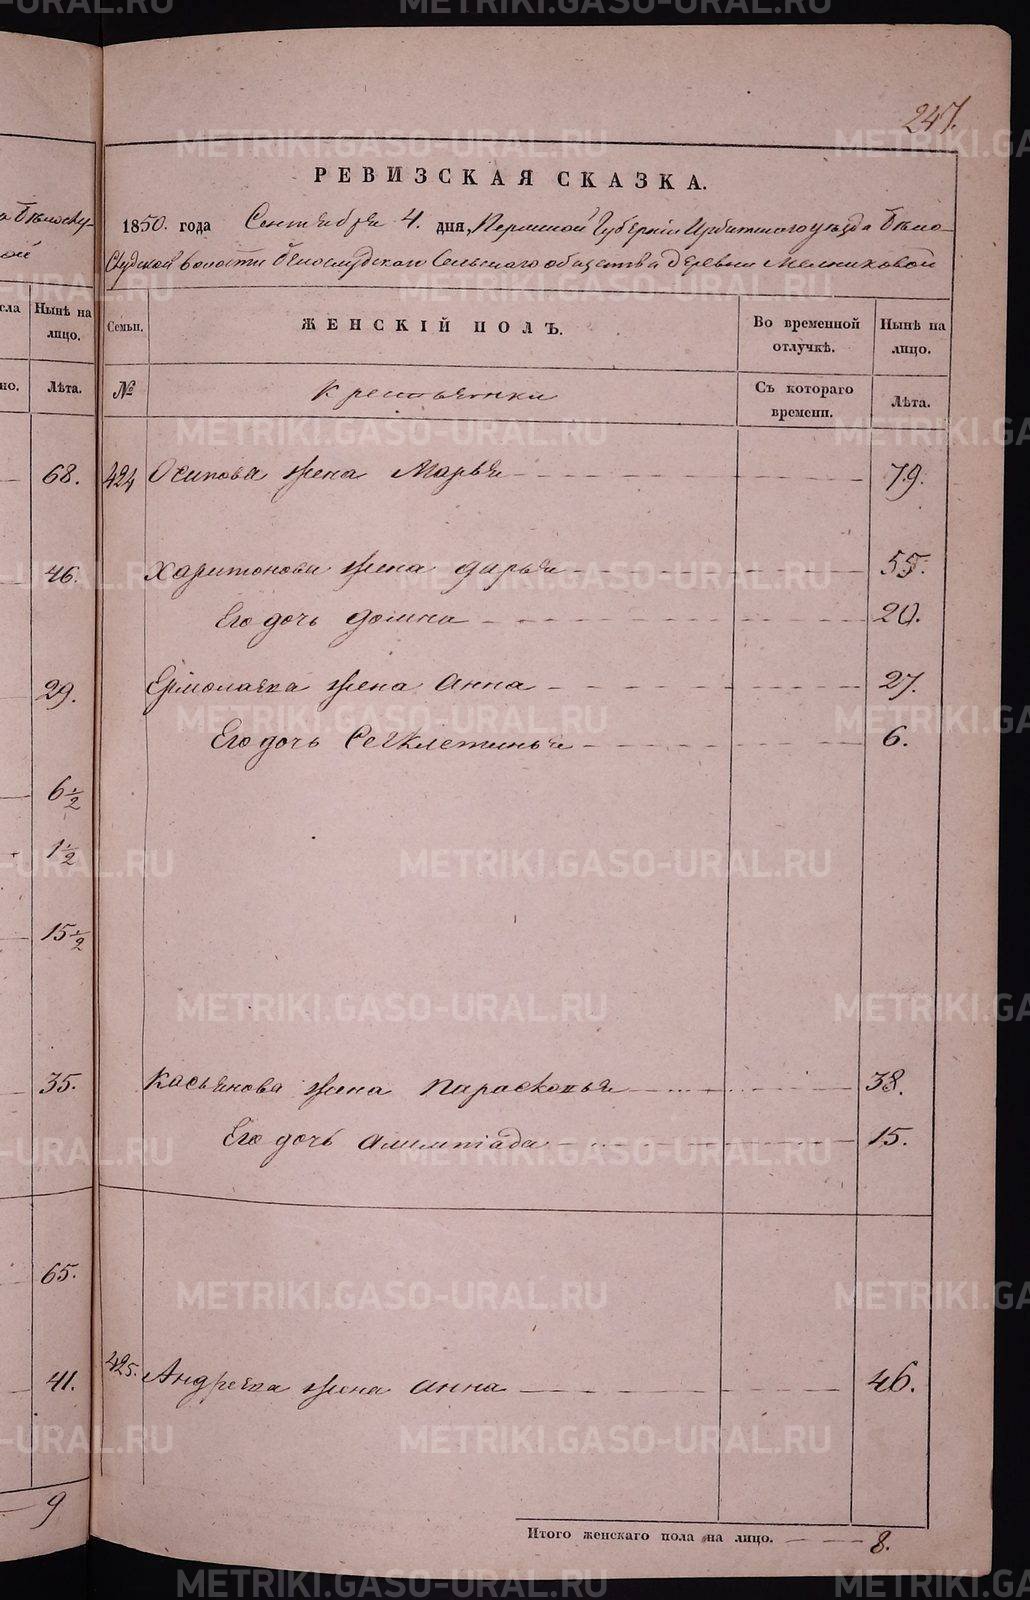 247.
РЕВИЗСКАЯ СКАЗКА.
1850. года Сентября 4. дня, Пермской Губернии Ирбитского уѣзда Бѣло-
слудской волости Бѣлослудскаго Сельскаго общества деревни Мелниковой
а Бѣлослу-
ной
сла
Нынѣ на лицо.
Семьи.
ЖЕНСКІЙ ПОЛЪ.
Во временной отлучкѣ.
Нынѣ на лицо.
но.
Лѣта.
№
Крестьянки
Съ котораго времени.
Лѣта.
68. 424 Осипова жена Марья 79.
46. Харитонова жена Дарья 55.
Его дочь Домна 20.
29. Ермолаева жена Анна 27.
Его дочь Секлетинья 6.
6 1/2
1 1/2
15 1/2
35. Касьянова жена Парасковья 38.
Его дочь Алимпіада 15.
65.
41. 425. Андреева жена Анна 46.
9
Итого женскаго пола на лицо. 8.
METRIKI.GASO-URAL.RU